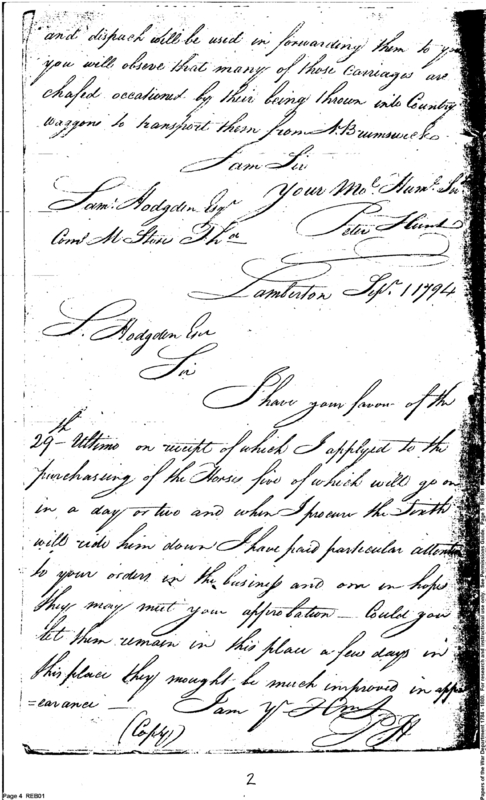 and dispach will be used in forwarding them to you
you will observe that many of those Carriages are
chafed occationed by their being thrown into Country
waggons to transport them from N. Brunswick
I am Sir
Your Mo.t Hum.l Ser
Saml. Hodgden Esqr
Peter Hunt
Com.y M Store Pha
Lamberton Sept. 1 1794
S. Hodgden Esqr
Sir
I have your favor of the
29th Ultimo on receipt of which I applyed to the
purchassing of the Horses five of which will go on
in a day or two and when I procure the Sixth
will ride him down I have paid particular attention
to your orders in the business and am in hope
they may meet your approbation — Could you
let them remain in this place a few days in
this place they mought be much improved in app
=earance — I am Yr Hm
(Copy) P H
2
Page 4 REB01
Papers of the War Department 1784 - 1800.